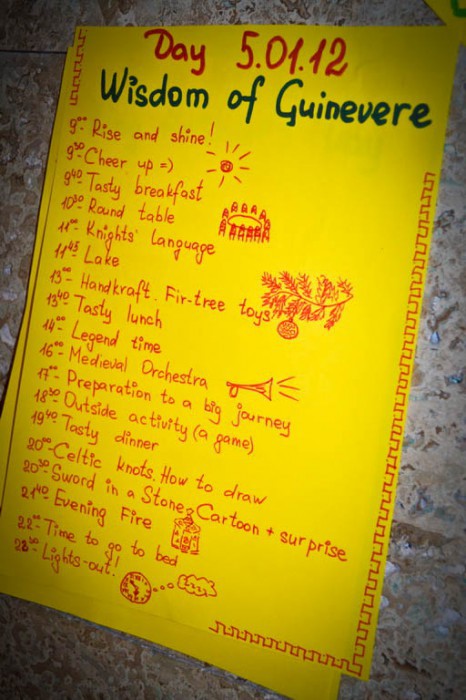 Day 5.01.12
Wisdom of Guinevere
9⁰⁰- Rise and shine!
9³⁰- Cheer up =)
9⁴⁰- Tasty breakfast
10³⁰- Round table
11⁰⁰- Knights' language
11⁴⁵- Lake
13⁰⁰- Handkraft. Fir-tree toys
13⁴⁰- Tasty lunch
14⁰⁰- Legend time
16⁰⁰- Medieval Orchestra
17⁰⁰- Preparation to a big journey
18³⁰- Outside activity (a game)
19⁴⁰- Tasty dinner
20⁰⁰- Celtic knots. How to draw
20³⁰- Sword in a Stone. Cartoon + surprise
21⁴⁰- Evening Fire
22⁰⁰- Time to go to bed
23⁰⁰- Lights-out!